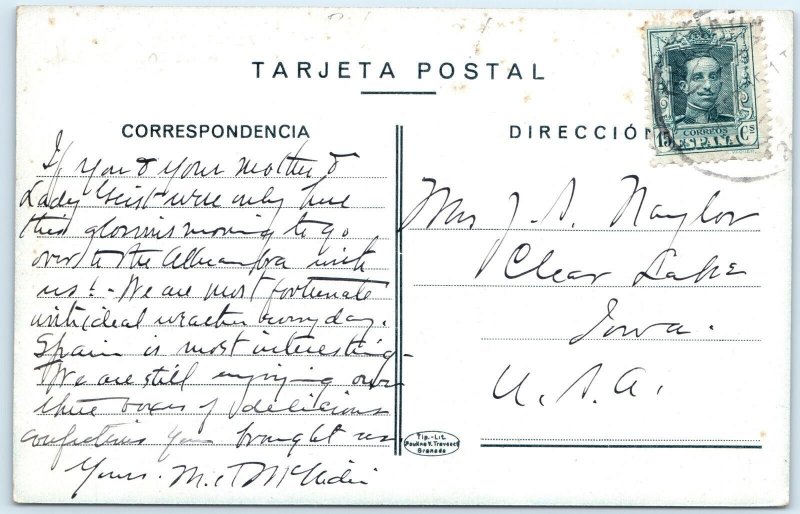 TARJETA POSTAL
CORRESPONDENCIA
If you & your mother &
Lady Geist were only here
this glorious morning to go
over to the Alhambra with
us! - We are most fortunate
with ideal weather every day.
Spain is most interesting -
We are still enjoying our
three boxes of delicious
confections you brought us
Yours. M.
DIRECCIÓN
Mrs J. S. Naylor
Clear Lake
Iowa.
U. S. A.
CORREOS
15 ESPAÑA Cs
Tip.-Lit.
Paulino V. Traveset
Granada